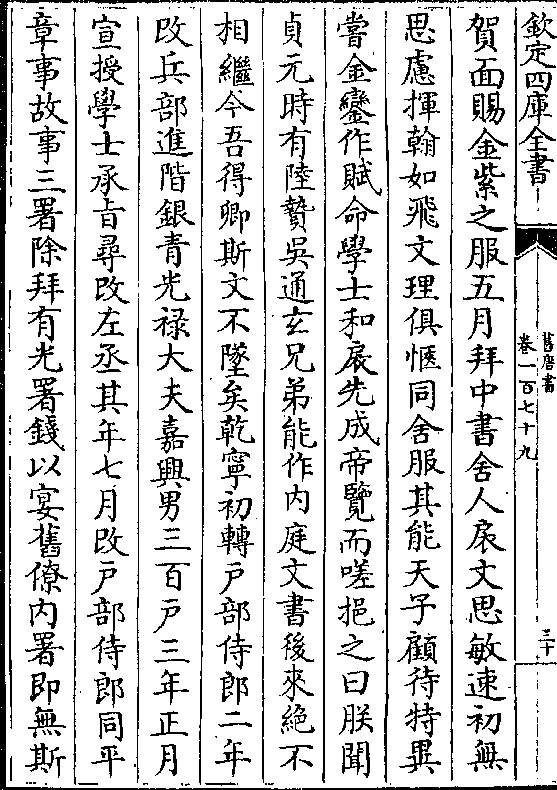 欽定四庫全書
舊唐書
卷一百七十九
三十
賀面賜金紫之服五月拜中書舍人扆文思敏速初無
思慮揮翰如飛文理俱愜同舍服其能天子顧待特異
嘗金鑾作賦命學士和扆先成帝覽而嗟挹之曰朕聞
貞元時有陸贄吳通玄兄弟能作内庭文書後來絕不
相繼今吾得卿斯文不墜矣乾寧初轉户部侍郎二年
改兵部進階銀青光禄大夫嘉興男三百户三年正月
宣授學士承旨尋改左丞其年七月改户部侍郎同平
章事故事三署除拜有光署錢以宴舊僚内署即無斯